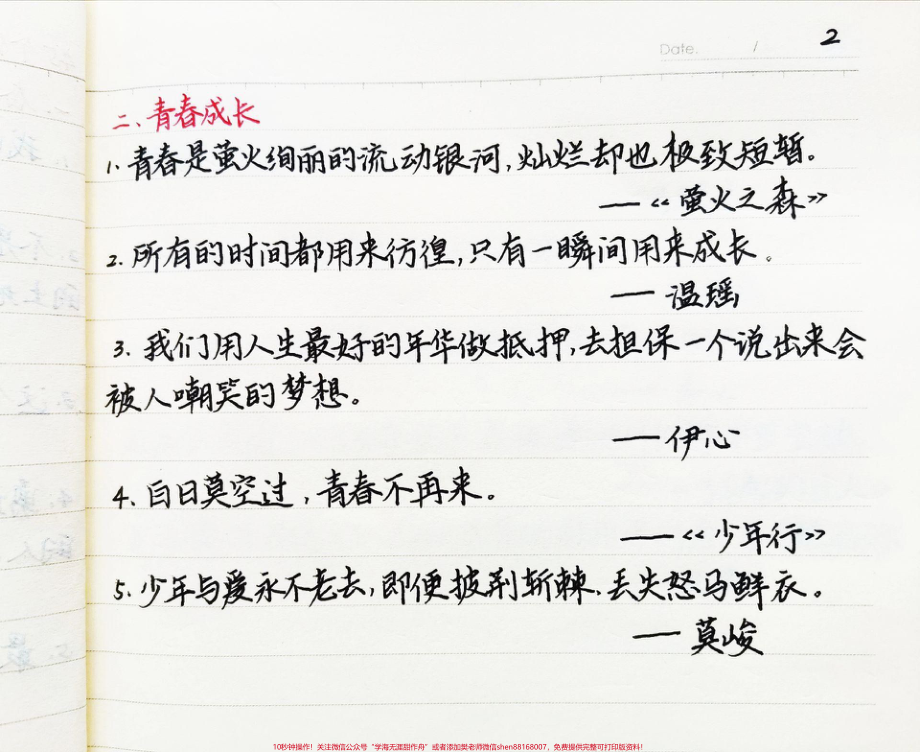 Date. / 2
二、青春成长
1. 青春是萤火绚丽的流动银河,灿烂却也极致短暂。
——《萤火之森》
2. 所有的时间都用来彷徨,只有一瞬间用来成长。
——温瑶
3. 我们用人生最好的年华做抵押,去担保一个说出来会
被人嘲笑的梦想。
——伊心
4、白日莫空过,青春不再来。
——《少年行》
5. 少年与爱永不老去,即便披荆斩棘、丢失怒马鲜衣。
——莫峻
10秒钟操作!关注微信公众号“学海无涯甜作舟”或者添加樊老师微信shen88168007,免费提供完整可打印版资料!